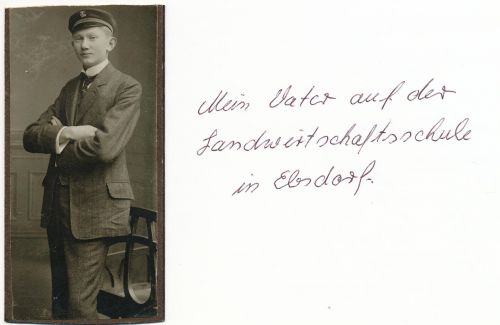 Mein Vater auf der
Landwirtschaftsschule
in Ebsdorf.